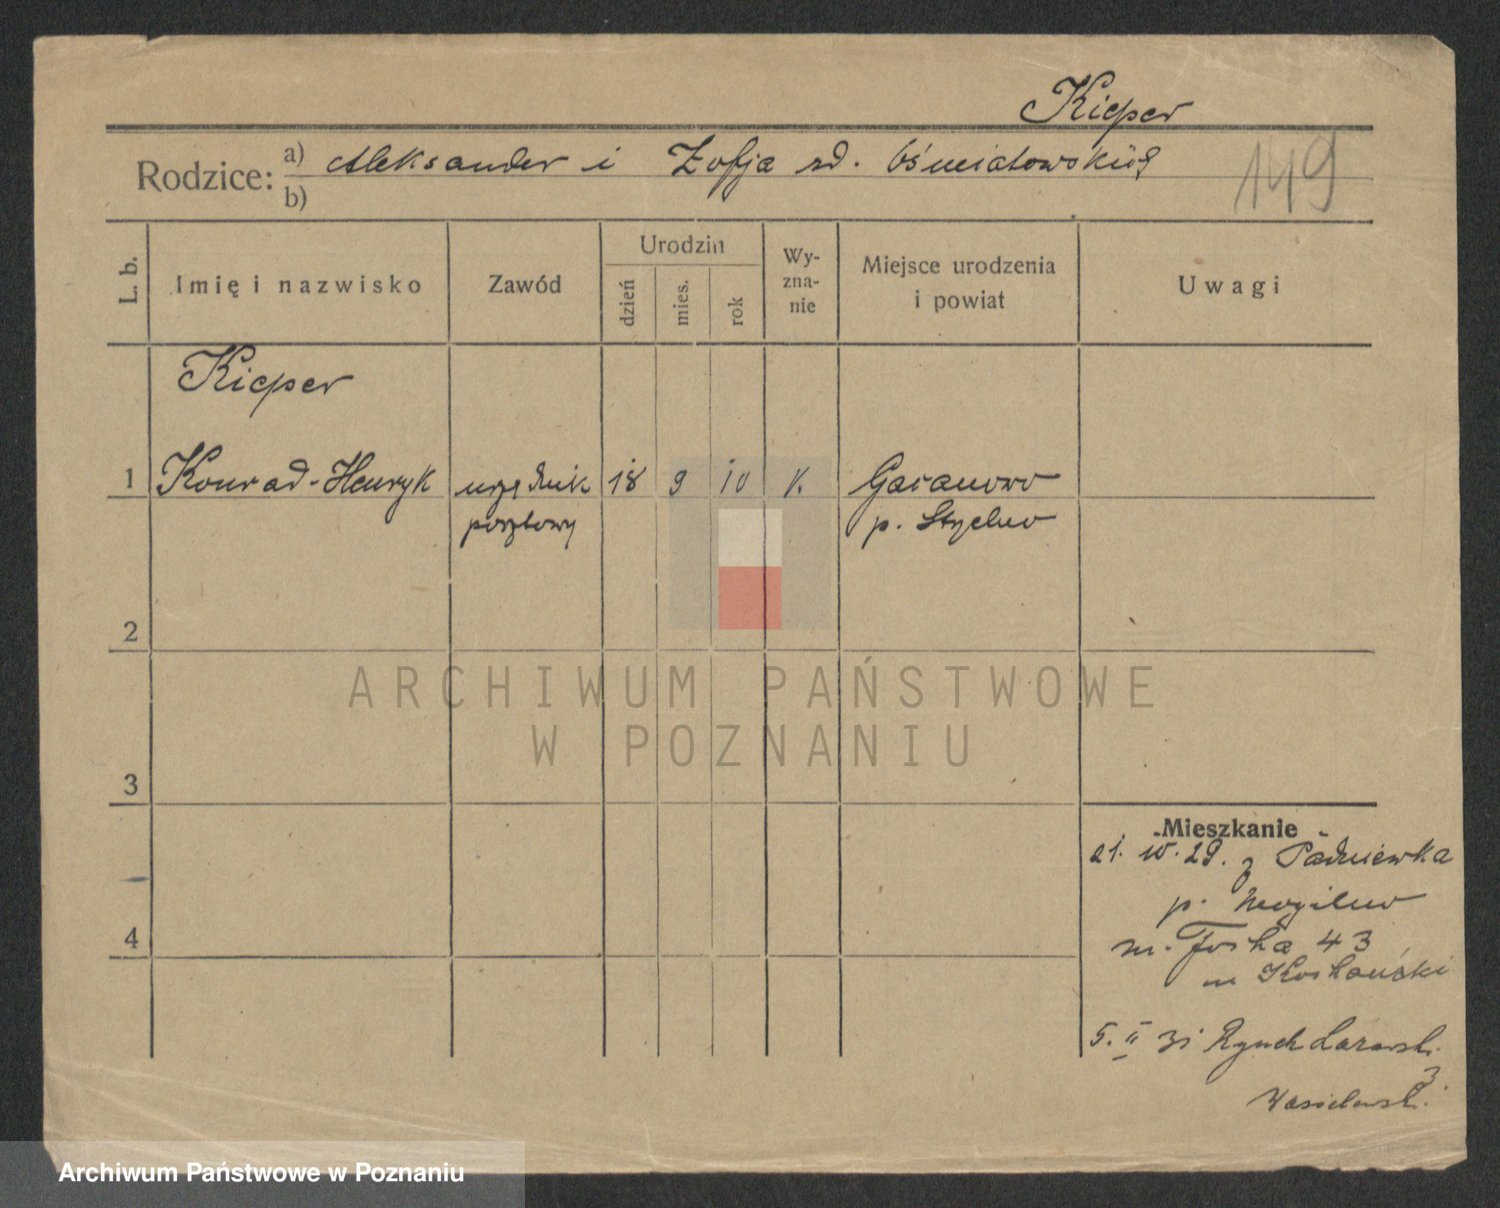 Kieper
Rodzice: a) Aleksander i Zofja zd. Ośmiałowskiij
b)
149
L. b.
Imię i nazwisko
Zawód
Urodzin
dzień
mies.
rok
Wy-
zna-
nie
Miejsce urodzenia
i powiat
Uwagi
Kieper
1 Konrad-Henryk urzędnik 18 9 10 k.
pocztowy p.
2
3
4
Mieszkanie
21. IV. 29. z Padniewka
p. Mogilno
m. Focha 43
5. II 31 Rynek Łazarski
3
Wasielewski
ARCHIWUM PAŃSTWOWE
W POZNANIU
Archiwum Państwowe w Poznaniu